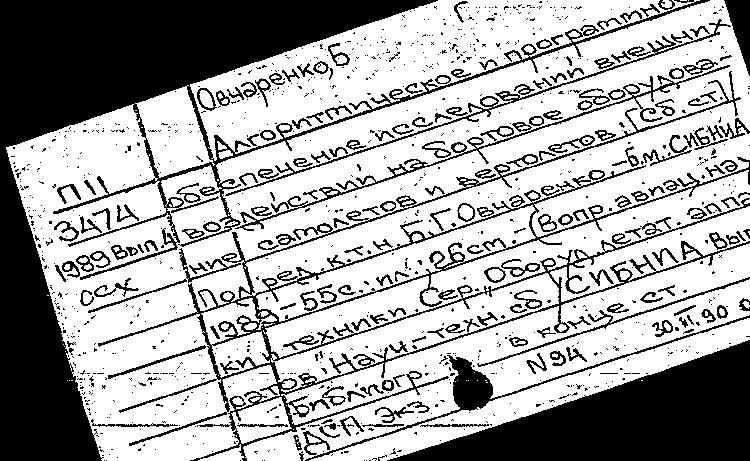 Овчаренко, Б
Алгоритмическое и программное
обеспечение исследований внешних
П 11
3474
1989 Вып. 4
ОСХ
воздействий на бортовое оборудова-
ние самолетов и вертолетов: [Сб. ст.] /
Под ред. к.т.н. Б.Г. Овчаренко. - б.м.: СИБНИА,
1989. - 55 с.: ил.; 26 см. - (Вопр. авиац. нау
ки и техники. Сер. "Оборуд. летат. аппа
ратов": Науч.-техн. сб. / СИБНИА; Вып
Библиогр. в конце ст.
ДСП. Экз. N 94 30.III.90